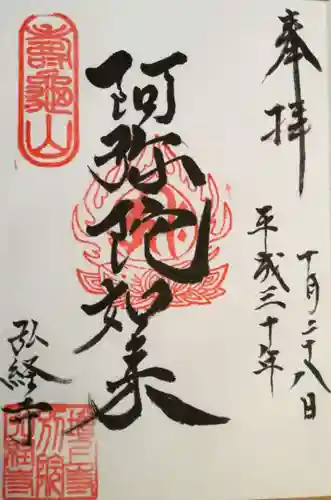 奉拝
平成三十年
十月二十八日
阿弥陀如来
弘経寺
壽亀山